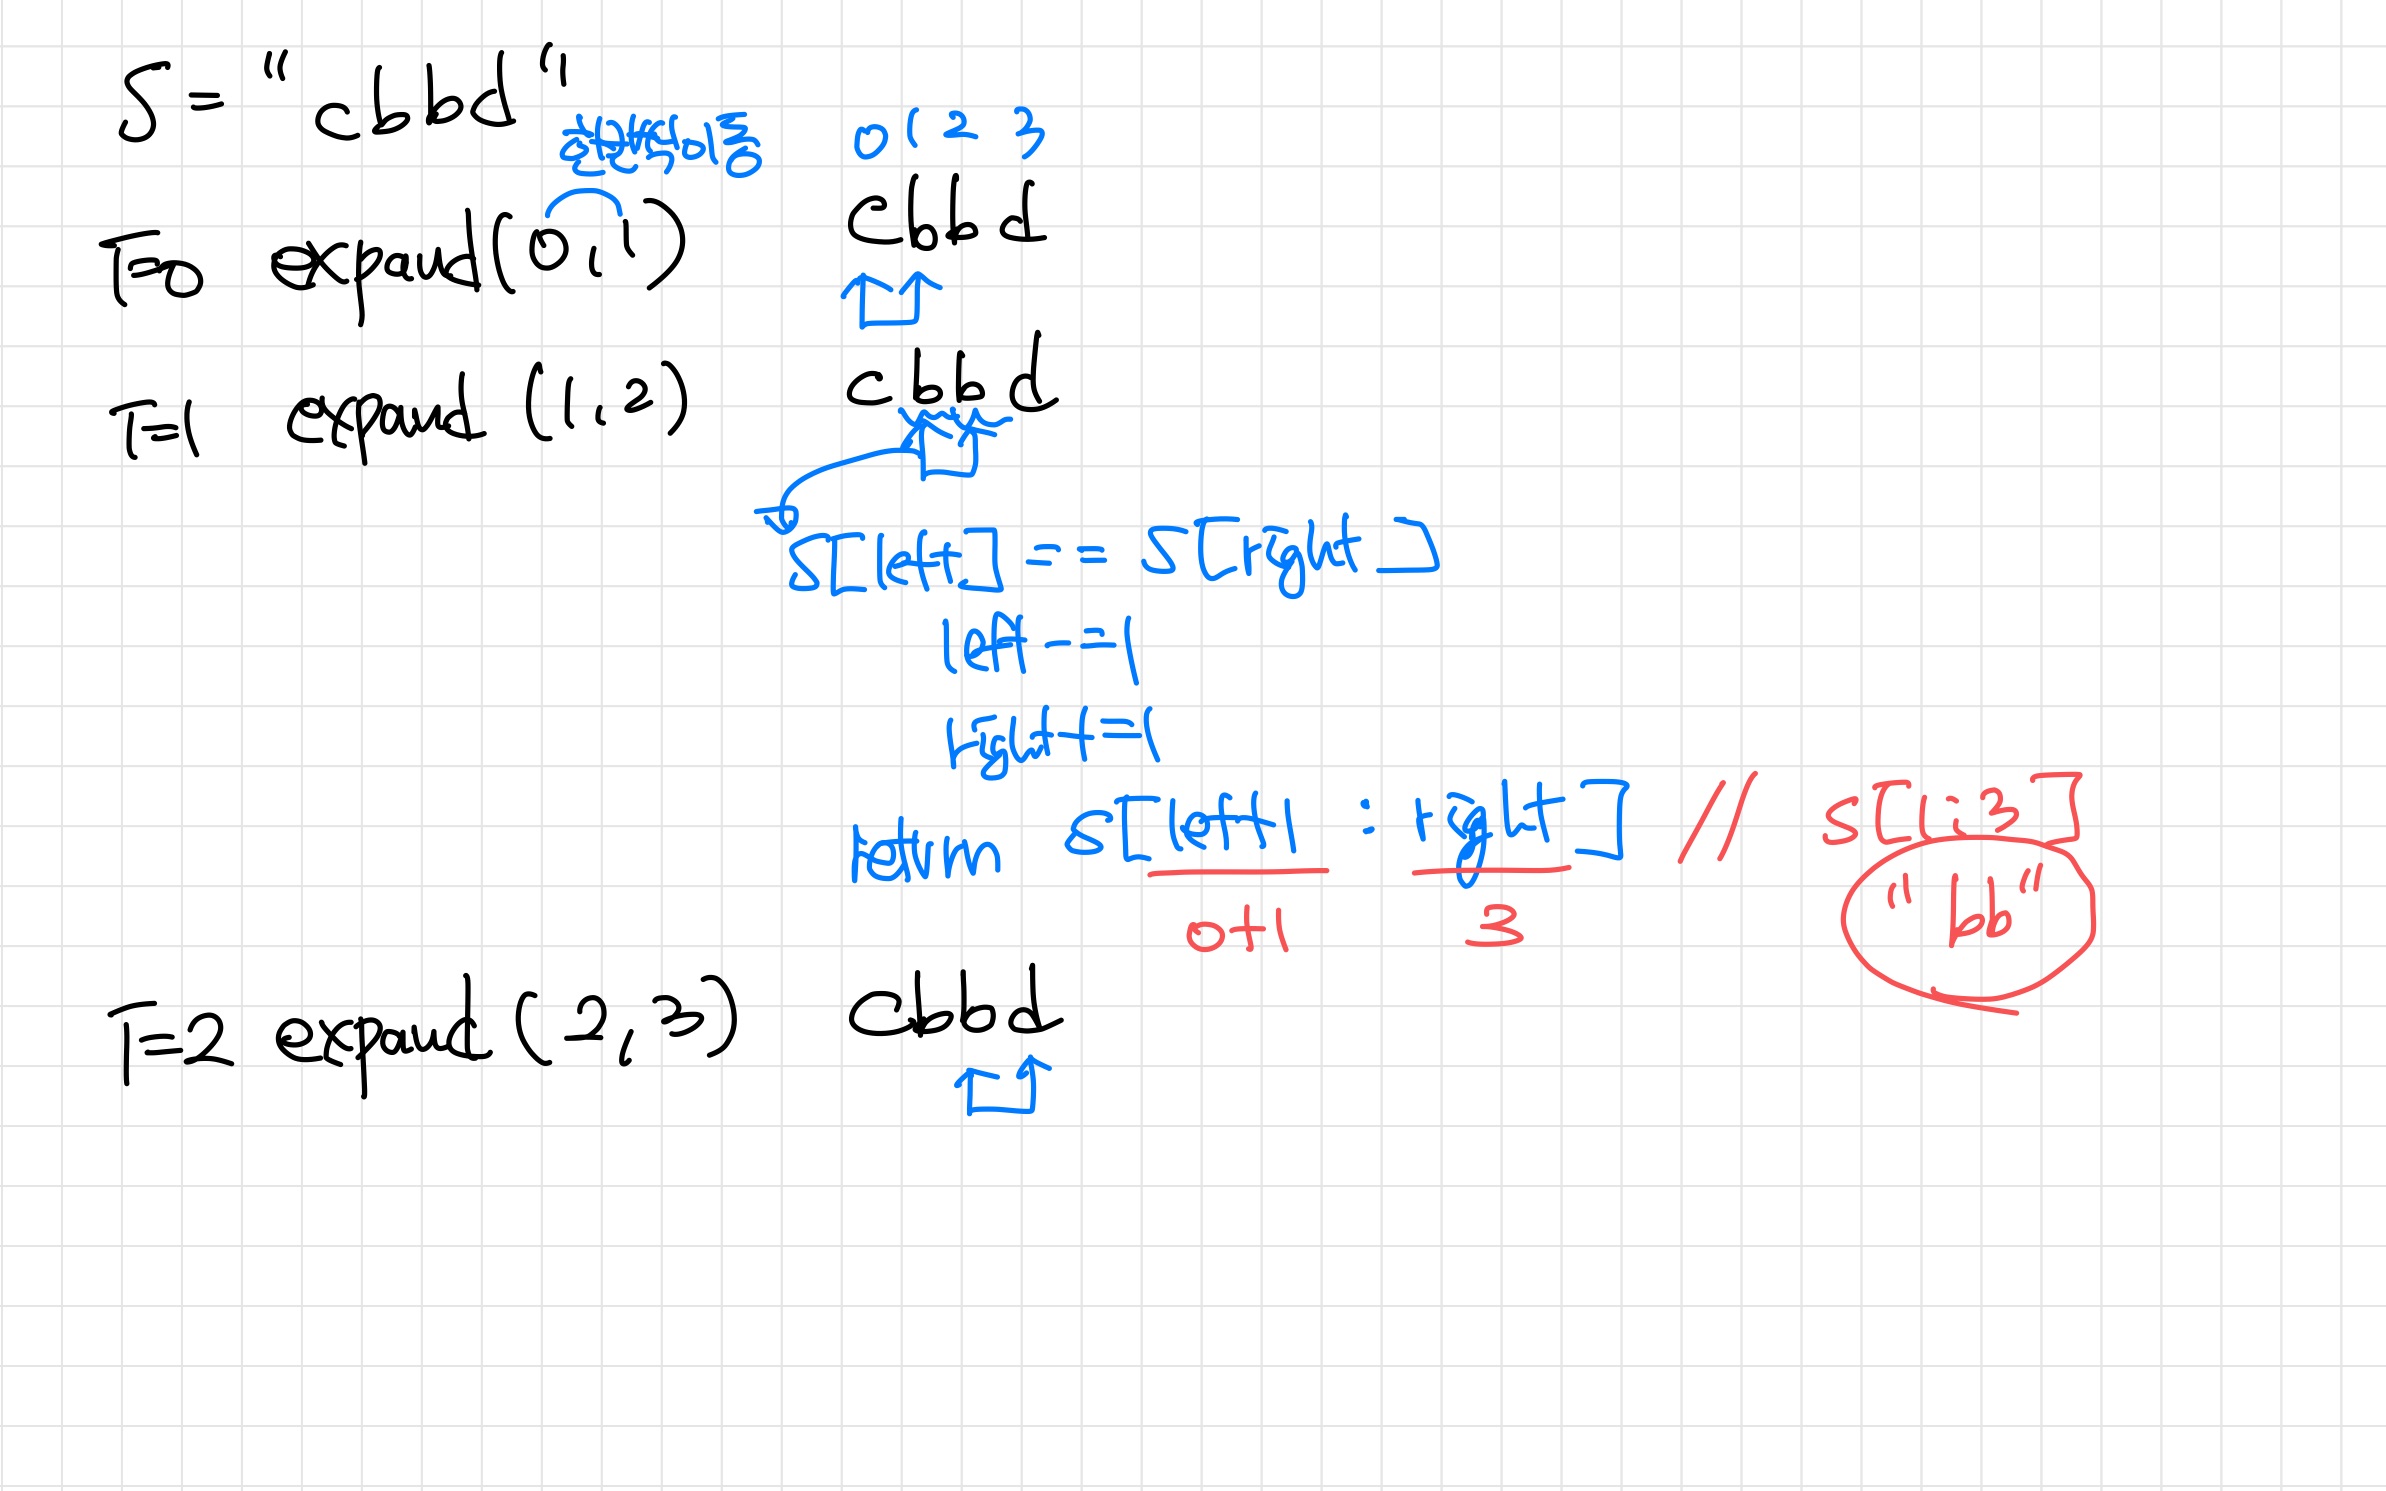 S = "cbbd"
0 1 2 3
i=0 expand(0,1) cbbd
i=1 expand(1,2) cbbd
s[left] == s[right]
left -= 1
right += 1
return s[left+1 : right] // s[1:3]
0+1 3 "bb"
i=2 expand(2,3) cbbd